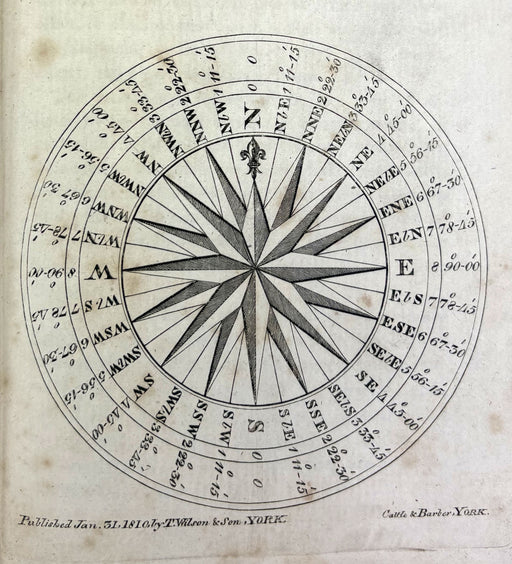 N 0 0
NbE 1 11°-15'
NNE 2 22°-30'
NEbN 3 33°-45'
NE 4 45°-00'
NEbE 5 56°-15'
ENE 6 67°-30'
EbN 7 78°-45'
E 8 90°-00'
EbS 7 78°-45'
ESE 6 67°-30'
SEbE 5 56°-15'
SE 4 45°-00'
SEbS 3 33°-45'
SSE 2 22°-30'
SbE 1 11°-15'
S 0 0
SbW 1 11°-15'
SSW 2 22°-30'
SWbS 3 33°-45'
SW 4 45°-00'
SWbW 5 56°-15'
WSW 6 67°-30'
WbS 7 78°-45'
W 8 90°-00'
WbN 7 78°-45'
WNW 6 67°-30'
NWbW 5 56°-15'
NW 4 45°-00'
NWbN 3 33°-45'
NNW 2 22°-30'
NbW 1 11°-15'
Published Jan. 31. 1810. by T. Wilson & Son, YORK.
Cattle & Barber, YORK.